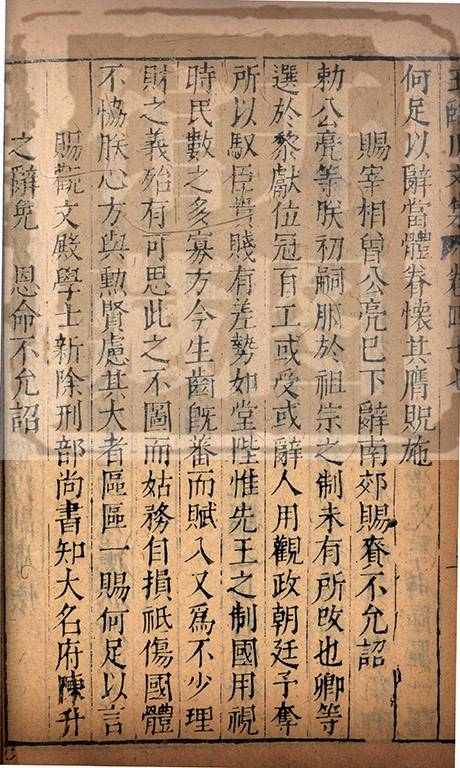 王臨川文集 卷四十七
何足以辭當體眷懷其膺貺施
賜宰相曾公亮巳下辭南郊賜賚不允詔
勑公亮等朕初嗣服於祖宗之制未有所攺也卿等
選於黎獻位冠百工或受或辭人用觀政朝廷予奪
所以馭臣貴賤有差勢如堂陛惟先王之制國用視
時民數之多寡方今生齒旣蕃而賦入又爲不少理
財之義殆有可思此之不圖而姑務自損祇傷國體
不恊朕心方與勲賢慮其大者區區一賜何足以言
賜觀文殿學士新除刑部尚書知大名府陳升
之辭免 恩命不允詔